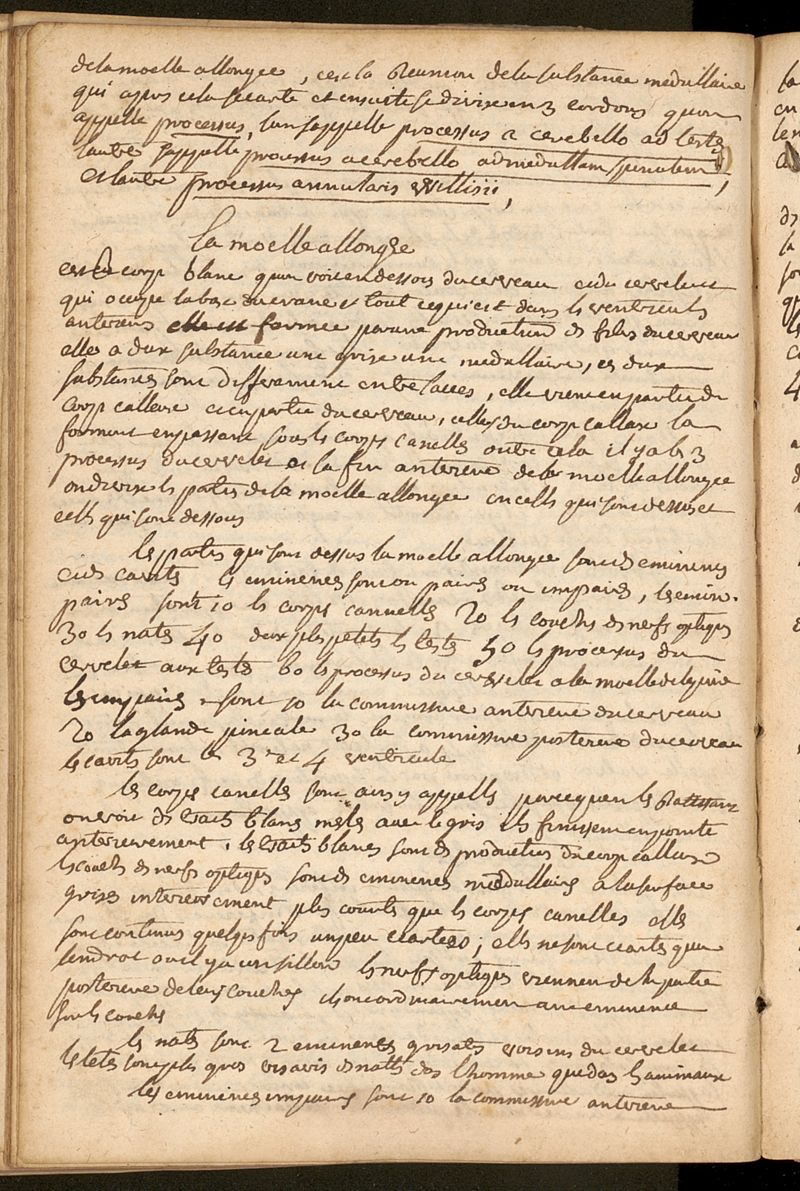 de la moelle allongee, cest la Reunion de la substance medullaire
qui apres cela secarte et ensuite se divise en 3 cordons quon
appelle processus, lun sappelle processus a cerebello ad testes
lautre sappelle processus a cerebello ad medullam spinalem,
et lautre processus annularis Willisii,
la moelle allongee
est le corp blanc quon voit en dessous du cerveau et du cervelet
qui occupe la base du crane et tout ce qui est dans les ventricules
anterieurs elle est formee par une production des filets du cerveau
elle a deux substance une grise une medullaire, ces deux
substances sont differament entrelacees, elle vient en partie du
corp calleux et en partie du cerveau, celles du corp calleux la
forment en passant sous les corps canelles outre cela il y a les 3
processus du cervelet et la fin anterieure de la moelle allongee
on divise les parties de la moelle allongee en celles qui sont dessus et
celles qui sont dessous
les parties qui sont dessus la moelle allongee sont des eminences
et des cavités les eminences sont ou paires ou impaires, les emin.
paires sont 1o les corps cannelles 2o les couches des nerfs optiques
3o les nates 4o deux plus petits les testes 5o les processus du
cervelet aux testes 6o les processus du cervelet a la moelle de lepine
les impaires sont 1o la commissure anterieure du cerveau
2o la glande pineale 3o la commissure posterieure du cerveau
les cavités sont le 3e et 4 ventricule
les corps canelles sont ainsy appellés parceque en les Ratissant
on voit des traits blancs meles avec le gris ils finissent en pointe
anterieurement, les traits blancs sont des productions du corp calleux
les couches des nerfs optiques sont des eminences medullaires a la surface
grises interieurement plus courtes que les corps canelles elles
sont continues quelquefois un peu ecartees; elles ne sont ecartées que
lendroit ou il y a un sillon les nerfs optiques viennent de la partie
posterieure de leurs couches ils ont ordinairement une eminence
sur les couches
les nates sont 2 eminences grisates voisins du cervelet
les testes sont plus gros vis a vis des nates dans lhomme que dans les animaux
les eminences impaires sont 1o la commissure anterieure